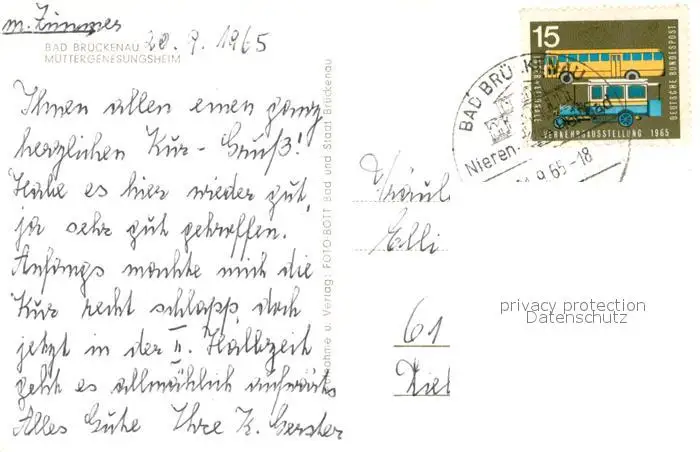 m. Zimmer
BAD BRÜCKENAU
MÜTTERGENESUNGSHEIM
20. 9. 1965
Ihnen allen einen ganz
herzlichen Kur-Gruß!
Habe es hier wieder gut,
ja sehr gut getroffen.
Anfangs machte mich die
Kur recht schlapp, doch
jetzt in der II. Halbzeit
geht es allmählich aufwärts
Alles Gute Ihre K. Gerster
Aufnahme u. Verlag: FOTO-BOTT Bad und Stadt Brückenau
15
DEUTSCHE BUNDESPOST
VERKEHRSAUSSTELLUNG 1965
BAD BRÜCKENAU
Nieren-
9.65-18
Fräul
Elli
61
privacy protection
Datenschutz